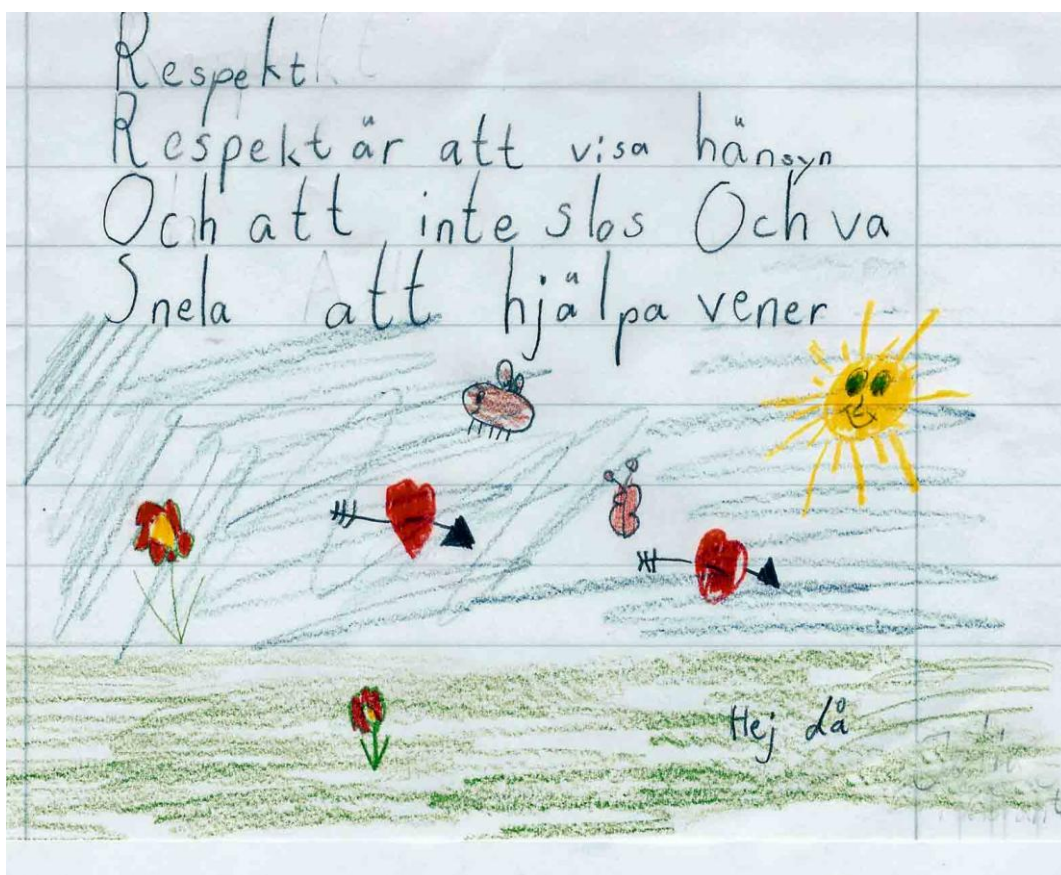 Respekt
Respekt är att visa hänsyn
Och att inte slos Och va
Snela att hjälpa vener
Hej då